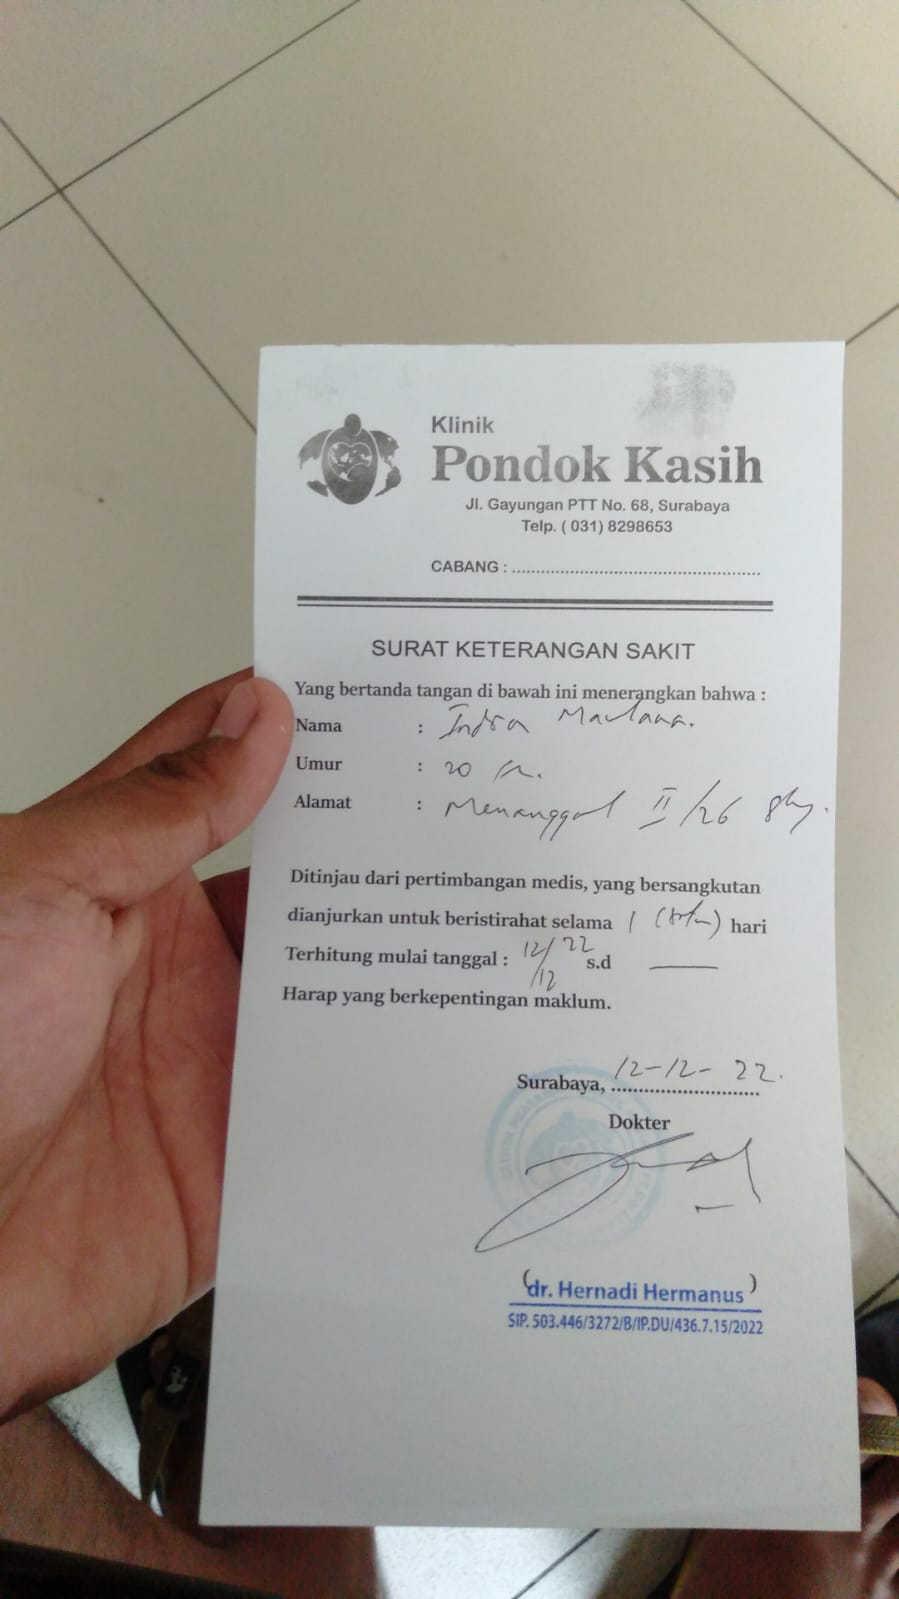 Klinik
Pondok Kasih
Jl. Gayungan PTT No. 68, Surabaya
Telp. ( 031) 8298653
CABANG : ......................................................
SURAT KETERANGAN SAKIT
Yang bertanda tangan di bawah ini menerangkan bahwa :
Nama : Indra Maulana.
Umur : 20
Alamat : Menanggal II/26 Sby.
Ditinjau dari pertimbangan medis, yang bersangkutan
dianjurkan untuk beristirahat selama 1 (satu) hari
Terhitung mulai tanggal : 12/12 22 s.d ——
Harap yang berkepentingan maklum.
Surabaya, 12-12-22.
Dokter
(dr. Hernadi Hermanus)
SIP. 503.446/3272/B/IP.DU/436.7.15/2022